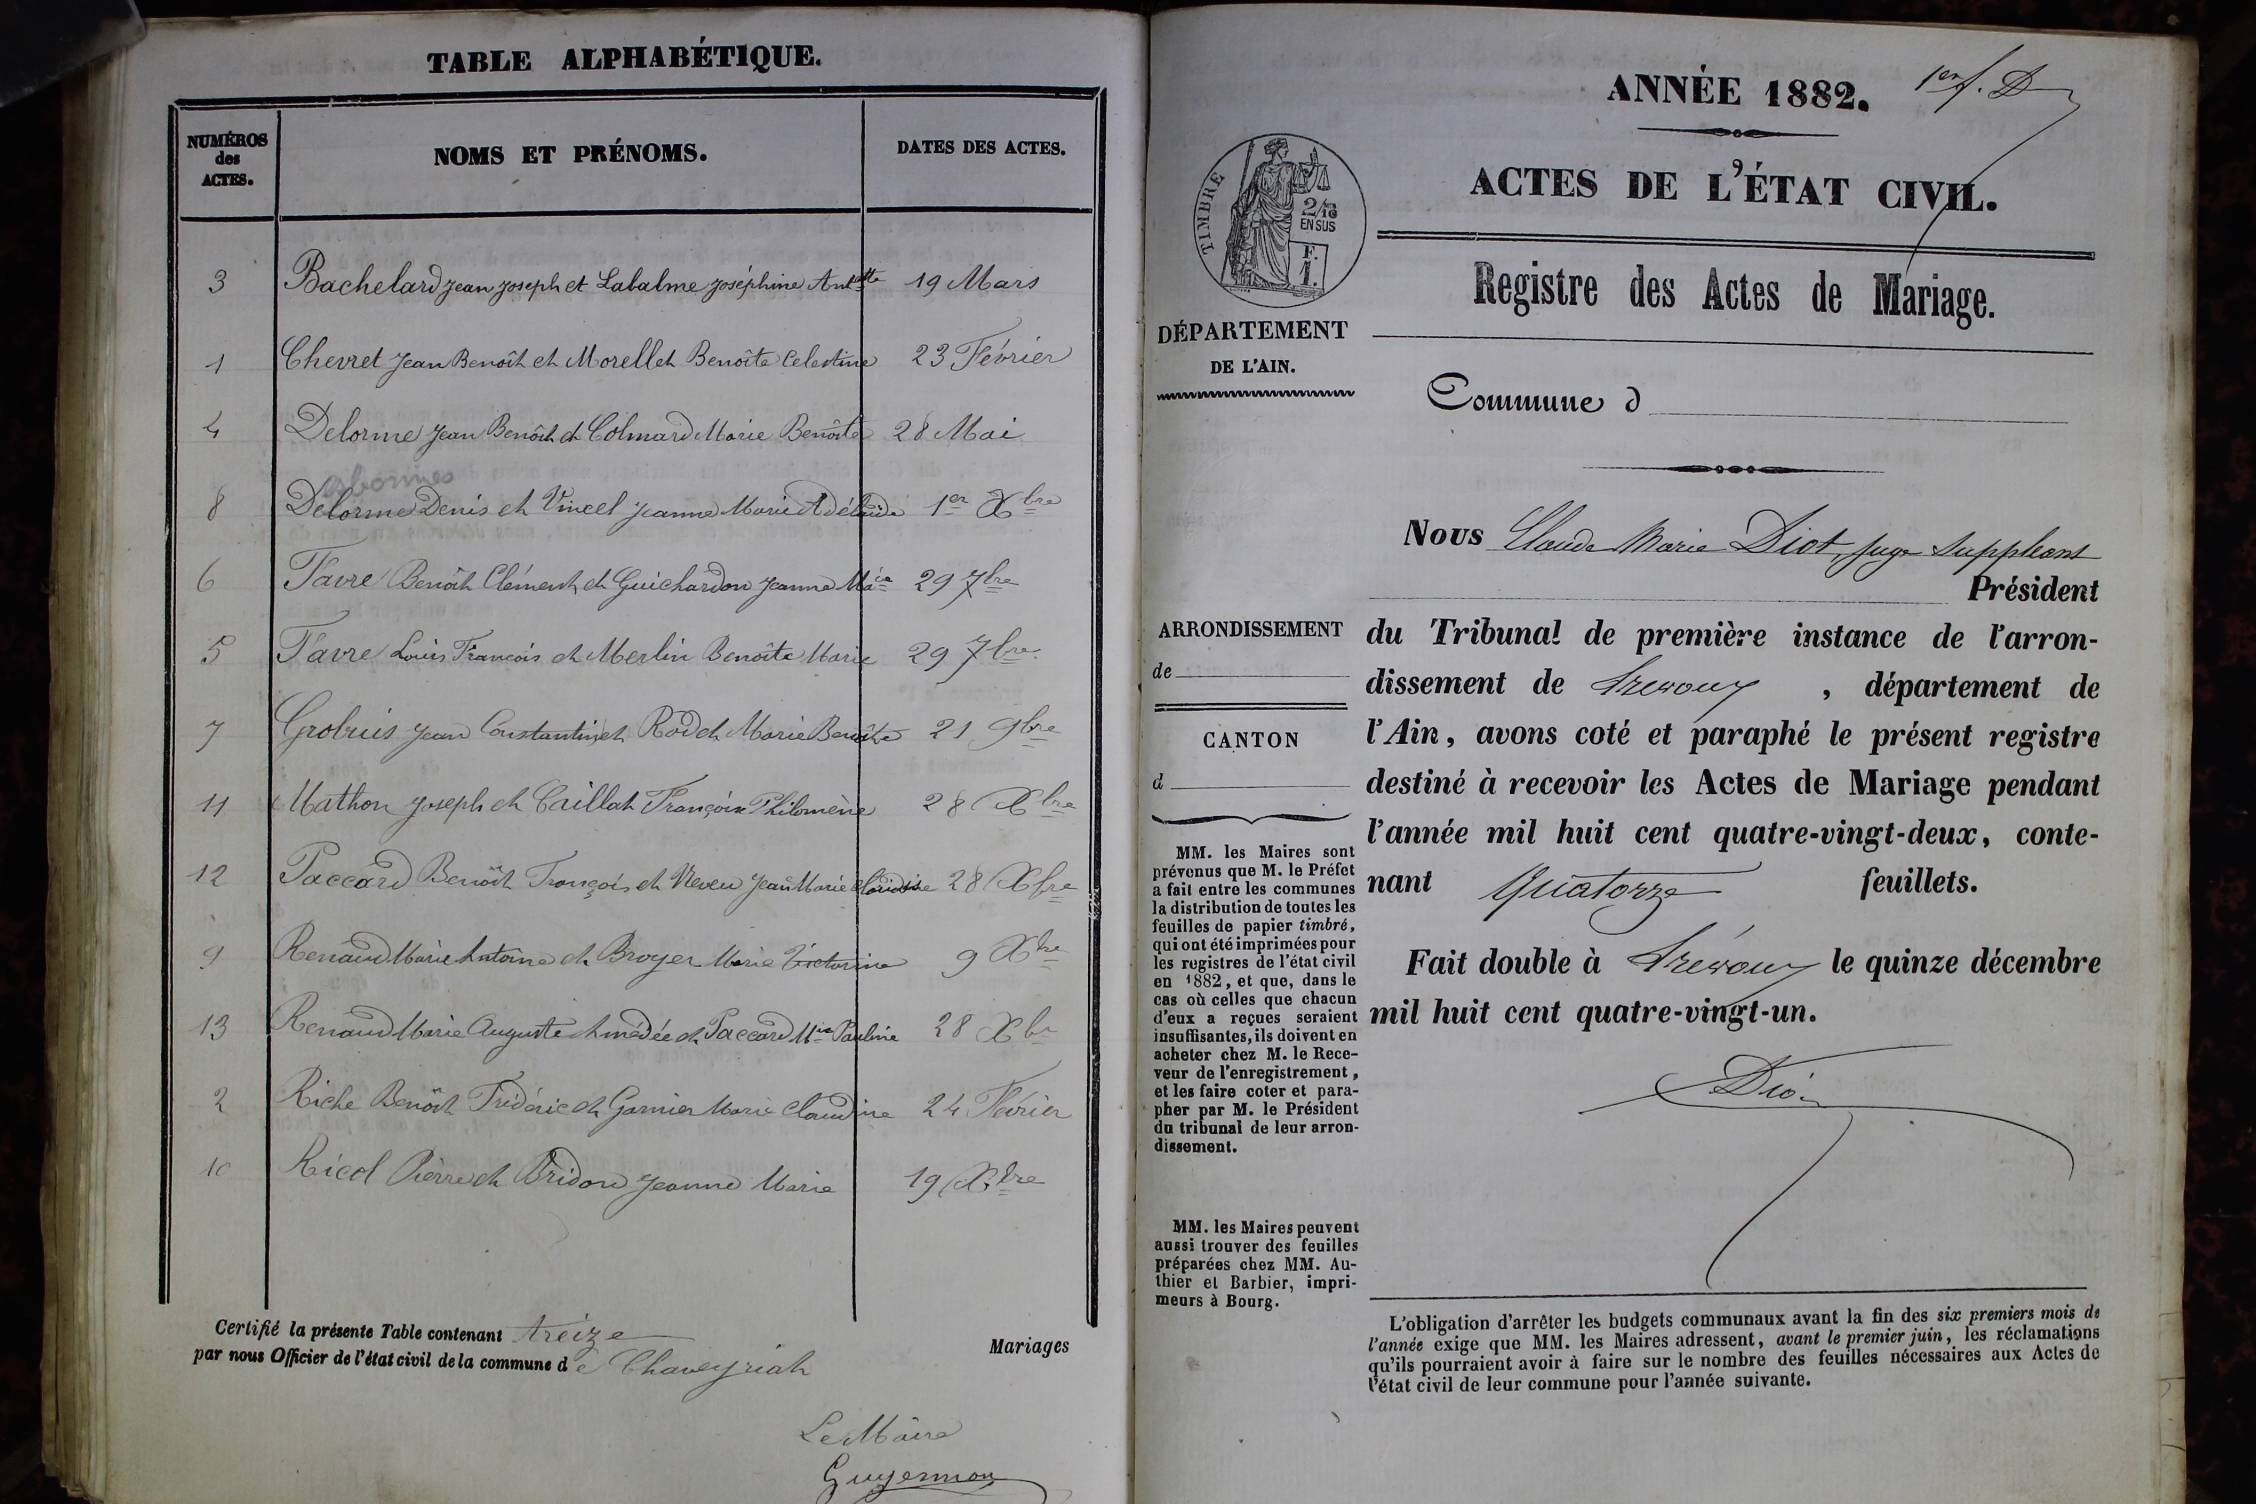 TABLE ALPHABÉTIQUE.
NUMÉROS
des
ACTES.
NOMS ET PRÉNOMS.
DATES DES ACTES.
3 Bachelard Jean Joseph et Labalme Joséphine Antette 19 Mars
1 Chevret Jean Benoît et Morellet Benoîte Celestine 23 Février
4 Delorme Jean Benoît et Colmard Marie Benoîte 28 Mai
8 Delorme Denis et Vincel Jeanne Marie Adélaïde 1er Xbre
6 Favre Benoît Clément et Guichardon Jeanne Mie 29 7bre
5 Favre Louis François et Merlin Benoîte Marie 29 7bre
7 Grobuis Jean Constantin et Rodet Marie Benoîte 21 9bre
11 Mathon Joseph et Caillat Françoise Philomène 28 Xbre
12 Paccard Benoît François et Neveu Jean Marie Claudine 28 Xbre
9 Renaud Marie Antoine et Broyer Marie Victorine 9 Xbre
13 Renaud Marie Auguste Amédée et Paccard Mie Pauline 28 Xbre
2 Riche Benoît Frédéric et Garnier Marie Claudine 24 Février
10 Ricol Pierre et Bridon Jeanne Marie 19 Xbre
Certifié la présente Table contenant treize Mariages
par nous Officier de l'état civil de la commune de Chaveyriat
Le Maire
Guyennon
ANNÉE 1882.
1er f. D
ACTES DE L'ÉTAT CIVIL.
TIMBRE
2/10
EN SUS
F.
1.
Registre des Actes de Mariage.
DÉPARTEMENT
DE L'AIN.
Commune d
ARRONDISSEMENT
de
CANTON
d
MM. les Maires sont
prévenus que M. le Préfet
a fait entre les communes
la distribution de toutes les
feuilles de papier timbré,
qui ont été imprimées pour
les registres de l'état civil
en 1882, et que, dans le
cas où celles que chacun
d'eux a reçues seraient
insuffisantes, ils doivent en
acheter chez M. le Rece-
veur de l'enregistrement,
et les faire coter et para-
pher par M. le Président
du tribunal de leur arron-
dissement.
MM. les Maires peuvent
aussi trouver des feuilles
préparées chez MM. Au-
thier et Barbier, impri-
meurs à Bourg.
Nous Claude Marie Diot, juge suppléant
Président
du Tribunal de première instance de l'arron-
dissement de Trévoux, département de
l'Ain, avons coté et paraphé le présent registre
destiné à recevoir les Actes de Mariage pendant
l'année mil huit cent quatre-vingt-deux, conte-
nant Quatorze feuillets.
Fait double à Trévoux le quinze décembre
mil huit cent quatre-vingt-un.
Diot
L'obligation d'arrêter les budgets communaux avant la fin des six premiers mois de
l'année exige que MM. les Maires adressent, avant le premier juin, les réclamations
qu'ils pourraient avoir à faire sur le nombre des feuilles nécessaires aux Actes de
l'état civil de leur commune pour l'année suivante.